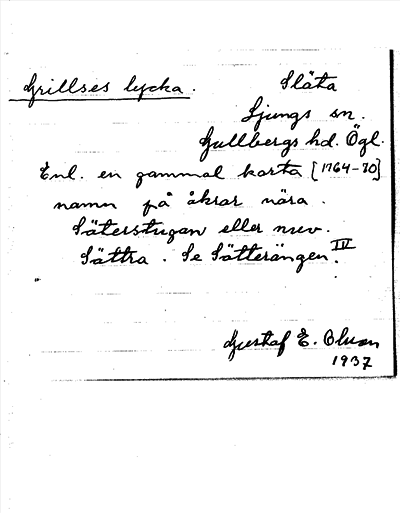 Grillses lycka. Släta
Ljungs sn.
Gullbergs hd. Ögl.
Enl. en gammal karta [1764-70]
namn på åkrar nära.
Säterstugan eller nuv.
Sättra. Se Sätterängen. IV
Gustaf E. Olson
1937